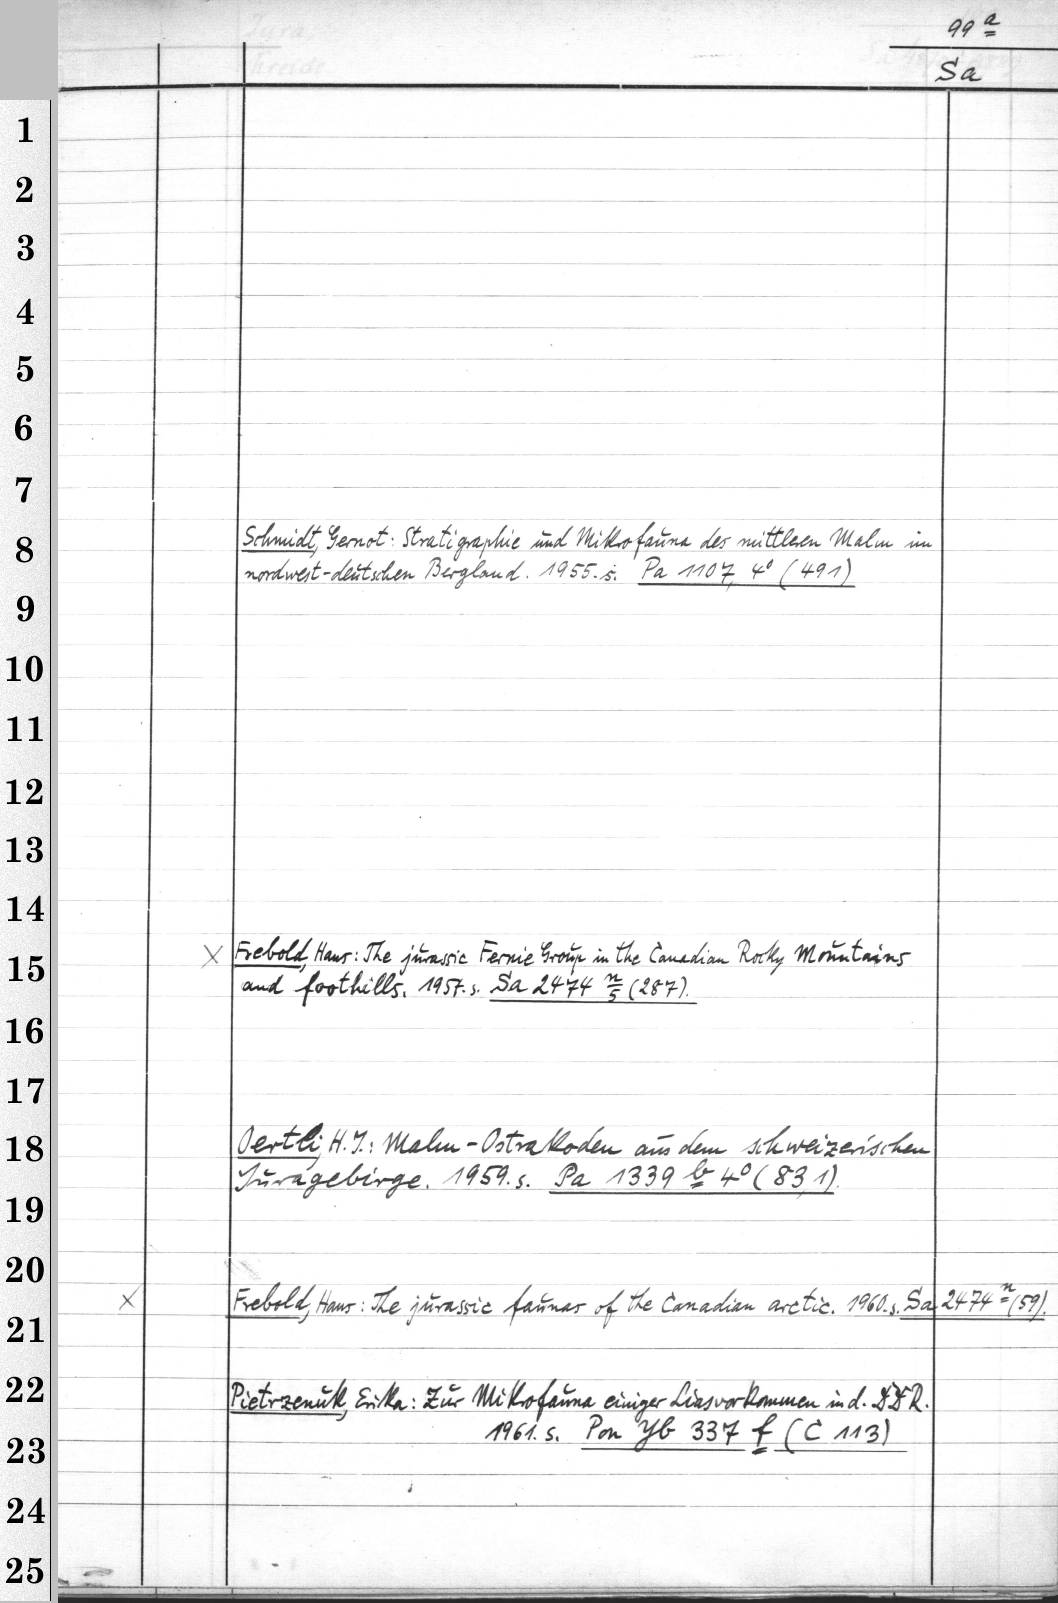 99 a
Sa
1
2
3
4
5
6
7
8
9
10
11
12
13
14
15
16
17
18
19
20
21
22
23
24
25
Schmidt, Gernot: Stratigraphie und Mikrofauna des mittleren Malm im
nordwest-deutschen Bergland. 1955. s. Pa 1107, 4° (491)
× Frebold, Hans: The jurassic Fernie Group in the Canadian Rocky Mountains
and foothills. 1957. s. Sa 2474 n/5 (287).
Oertli, H. J.: Malm-Ostrakoden aus dem schweizerischen
Juragebirge. 1959. s. Pa 1339 b 4° (83,1).
× Frebold, Hans: The jurassic faunas of the Canadian arctic. 1960. s. Sa 2474 n (59).
Pietrzenuk, Erika: Zur Mikrofauna einiger Liasvorkommen in d. DDR.
1961. s. Pon Yb 337 f (C 113)